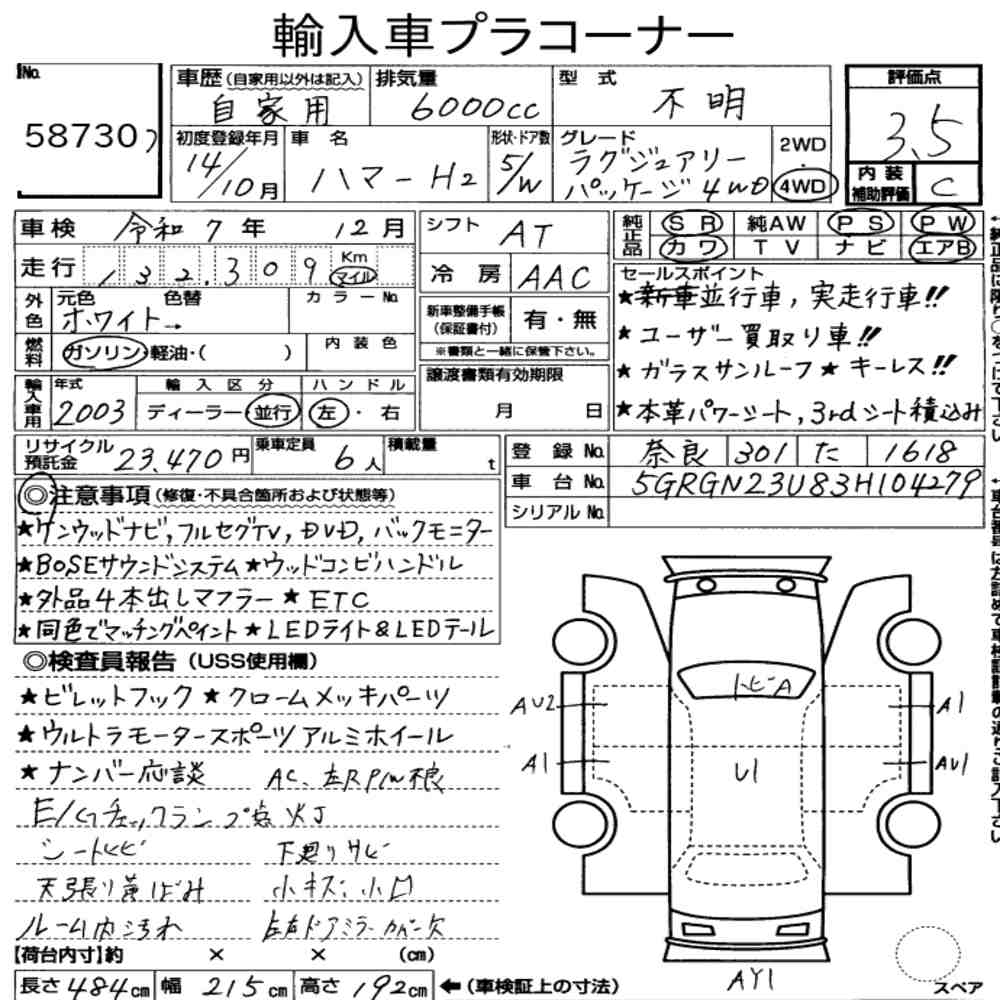 輸入車プラコーナー
No.
58730
車歴 (自家用以外は記入)
自家用
排気量
6000cc
型式
不明
評価点
3.5
内装補助評価
C
初度登録年月
14/10月
車名
ハマーH2
形状・ドア数
5/W
グレード
ラグジュアリー
パッケージ 4WD
2WD
・
4WD
車検 令和7年 12月
走行 132,309 Km マイル
シフト AT
冷房 AAC
純正品 SR 純AW PS PW
カワ TV ナビ エアB
外色
元色 色替 カラーNo.
ホワイト→
燃料
ガソリン・軽油・( )
内装色
新車整備手帳
(保証書付)
有・無
※書類と一緒に保管下さい。
譲渡書類有効期限
月 日
セールスポイント
★新車並行車,実走行車!!
★ユーザー買取り車!!
★ガラスサンルーフ★キーレス!!
★本革パワーシート,3rdシート積込み
輸入車用
年式
2003
輸入区分
ディーラー・並行
ハンドル
左・右
リサイクル預託金 23,470円
乗車定員 6人
積載量 t
登録No. 奈良 301 た 1618
車台No. 5GRGN23U83H104279
シリアルNo.
◎注意事項 (修復・不具合箇所および状態等)
★ケンウッドナビ,フルセグTV,DVD,バックモニター
★BOSEサウンドシステム★ウッドコンビハンドル
★外品4本出しマフラー★ETC
★同色でマッチングペイント★LEDライト&LEDテール
◎検査員報告 (USS使用欄)
★ビレットフック★クロームメッキパーツ
★ウルトラモータースポーツアルミホイール
★ナンバー応談 AC、左RP/W不良
E/Gチェックランプ点灯
シートヒビ 下廻りサビ
天張り黄ばみ 小キズ、小凹
ルーム内汚れ 左右ドアミラーカバー欠
【荷台内寸】約 × × (cm)
長さ484cm 幅215cm 高さ192cm ←(車検証上の寸法)
トビA
AU2
A1
U1
A1
AU1
AY1
スペア